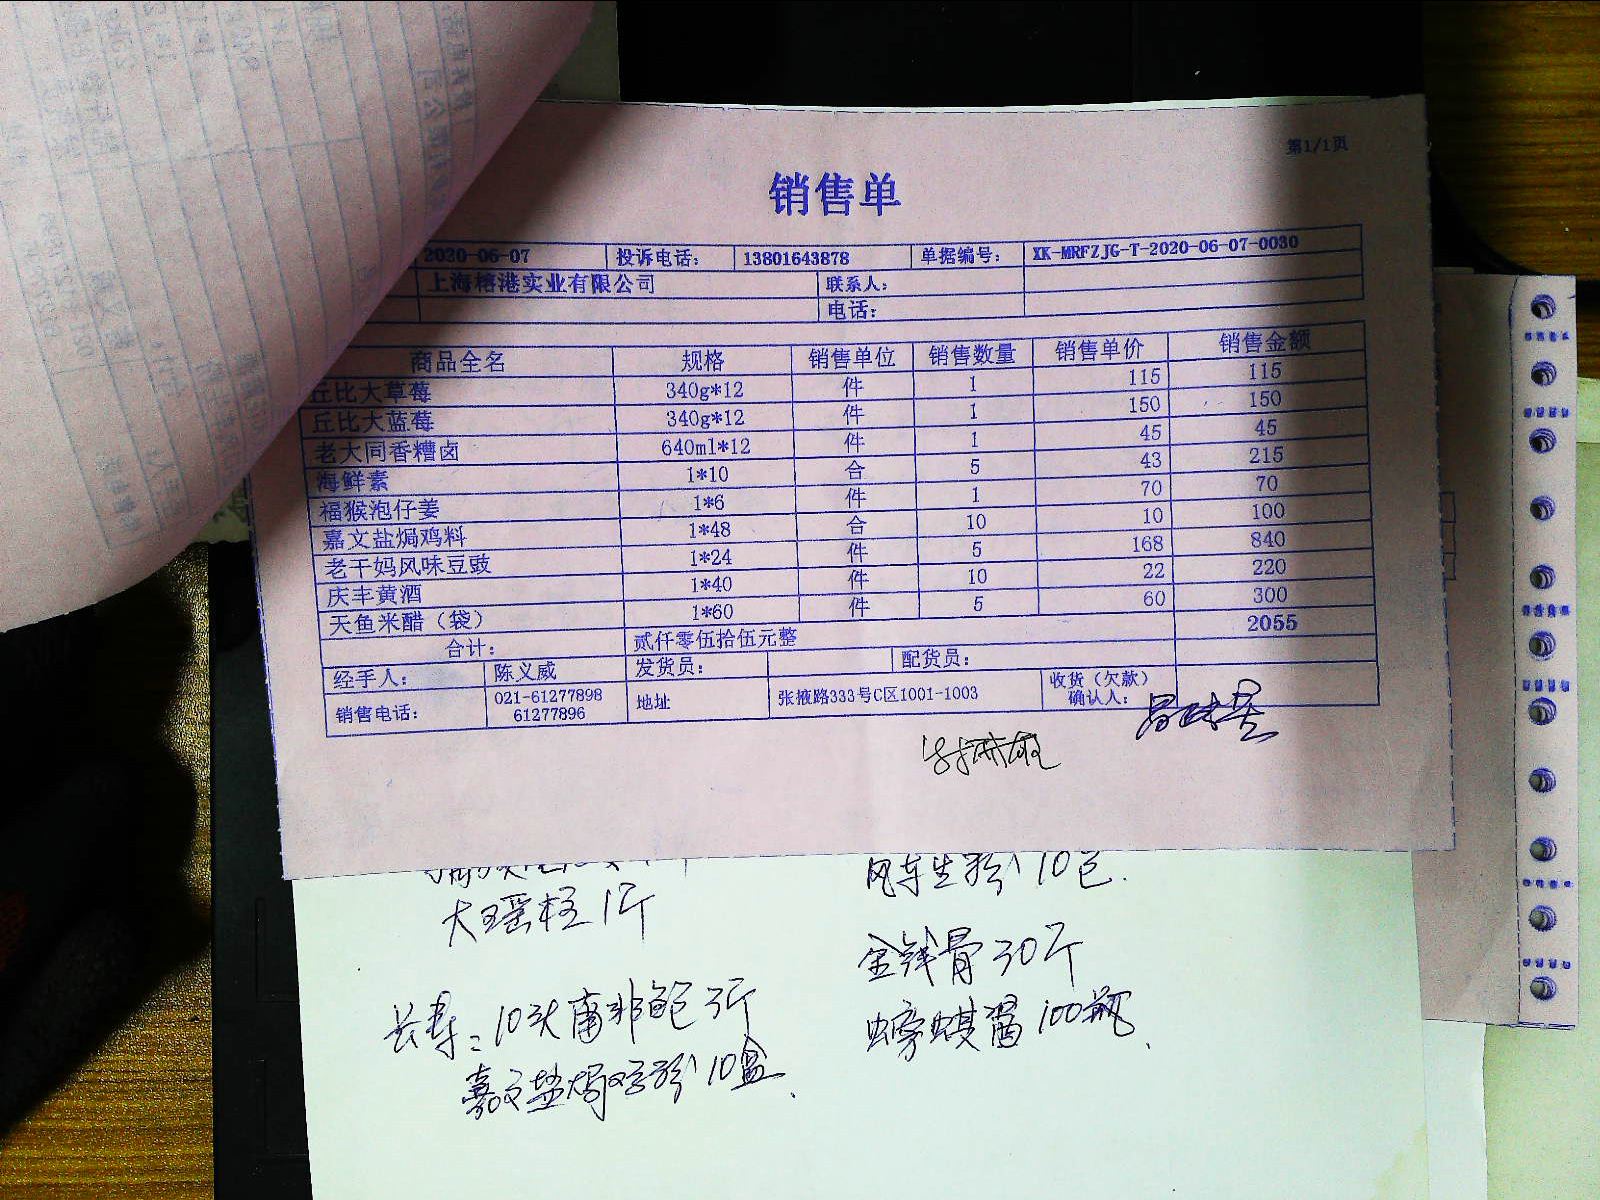 第1/1页
销售单
2020-06-07 投诉电话: 13801643878 单据编号: XK-MRFZJG-T-2020-06-07-0030
上海榕港实业有限公司 联系人:
电话:
商品全名 规格 销售单位 销售数量 销售单价 销售金额
丘比大草莓 340g*12 件 1 115 115
丘比大蓝莓 340g*12 件 1 150 150
老大同香糟卤 640ml*12 件 1 45 45
海鲜素 1*10 合 5 43 215
福猴泡仔姜 1*6 件 1 70 70
嘉文盐焗鸡料 1*48 合 10 10 100
老干妈风味豆豉 1*24 件 5 168 840
庆丰黄酒 1*40 件 10 22 220
天鱼米醋（袋） 1*60 件 5 60 300
合计: 贰仟零伍拾伍元整 2055
经手人: 陈义威 发货员: 配货员:
销售电话: 021-61277898 61277896 地址 张掖路333号C区1001-1003 收货（欠款）确认人:
大瑶柱1斤
长寿: 10头南非鲍3斤
嘉文盐焗鸡粉10盒.
风车生粉10包.
金钱骨30斤
螃蜞酱100瓶.